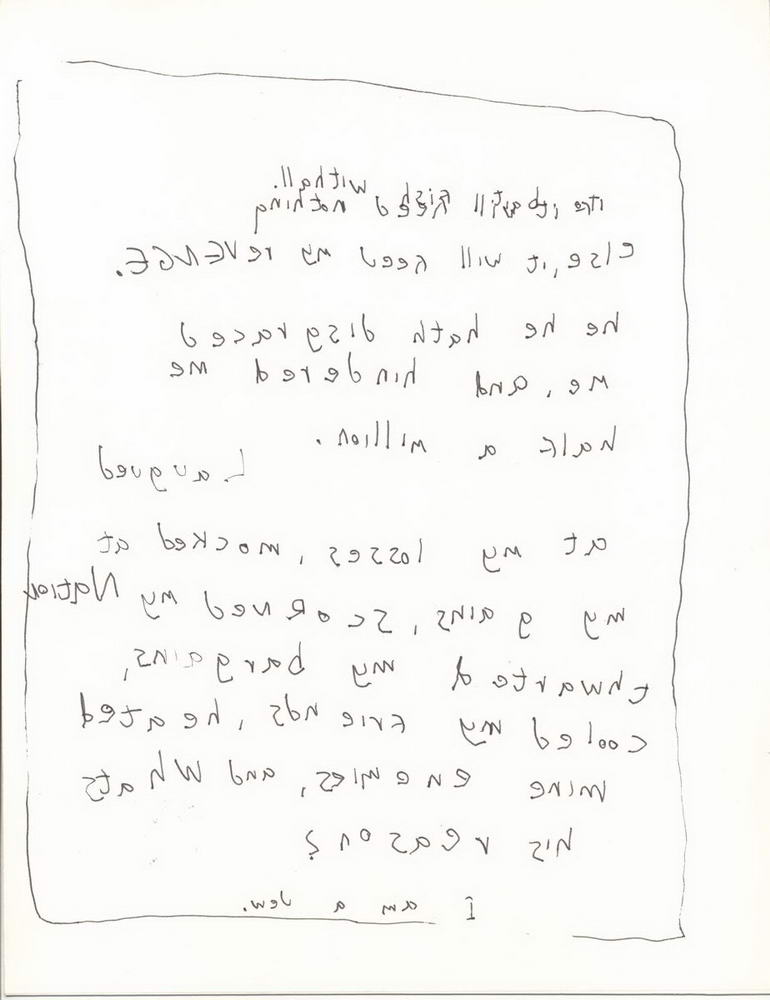 withall.
nothing
else, it will feed my revENGE.
he he hath disgraced
me, and hindered me
half a million.
Laugued
at my losses, mocked at
my gains, scoRned my Nation
thwarted my bargains,
cooled my Friends, heated
mine enemies, and Whats
his reason?
I am a Jew.